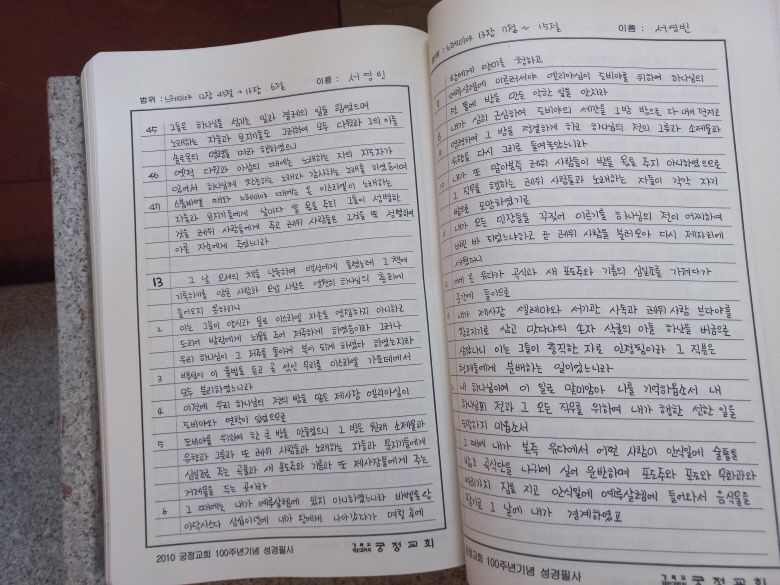 범위 : 느헤미야 12장 45절 ~ 13장 6절 이름 : 서영빈
45 그들은 하나님을 섬기는 일과 결례의 일을 힘썼으며
노래하는 자들과 문지기들도 그러하여 모두 다윗과 그의 아들
솔로몬의 명령을 따라 행하였으니
46 옛적 다윗과 아삽의 때에는 노래하는 자의 지도자가
있어서 하나님께 찬송하는 노래와 감사하는 노래를 하였음이며
47 스룹바벨 때와 느헤미야 때에는 온 이스라엘이 노래하는
자들과 문지기들에게 날마다 쓸 몫을 주되 그들이 성별한
것을 레위 사람들에게 주고 레위 사람들은 그것을 또 성별하여
아론 자손에게 주었느니라
13 그 날 모세의 책을 낭독하여 백성에게 들렸는데 그 책에
기록하기를 암몬 사람과 모압 사람은 영원히 하나님의 총회에
들어오지 못하리니
2 이는 그들이 양식과 물로 이스라엘 자손을 영접하지 아니하고
도리어 발람에게 뇌물을 주어 저주하게 하였음이라 그러나
우리 하나님이 그 저주를 돌이켜 복이 되게 하셨다 하였는지라
3 백성이 이 율법을 듣고 곧 섞인 무리를 이스라엘 가운데에서
모두 분리하였느니라
4 이전에 우리 하나님의 전의 방을 맡은 제사장 엘리아십이
도비야와 연락이 있었으므로
5 도비야를 위하여 한 큰 방을 만들었으니 그 방은 원래 소제물과
유향과 그릇과 또 레위 사람들과 노래하는 자들과 문지기들에게
십일조로 주는 곡물과 새 포도주와 기름과 또 제사장들에게 주는
거제물을 두는 곳이라
6 그 때에는 내가 예루살렘에 있지 아니하였느니라 바벨론 왕
아닥사스다 삼십이년에 내가 왕에게 나아갔다가 며칠 후에
2010 궁정교회 100주년기념 성경필사
궁정교회
범위 : 느헤미야 13장 7절 ~ 15절 이름 : 서영빈
왕에게 말미를 청하고
예루살렘에 이르러서야 엘리아십이 도비야를 위하여 하나님의
전 뜰에 방을 만든 악한 일을 안지라
내가 심히 근심하여 도비야의 세간을 그 방 밖으로 다 내어 던지고
명령하여 그 방을 정결하게 하고 하나님의 전의 그릇과 소제물과
유향을 다시 그리로 들여놓았느니라
내가 또 알아본즉 레위 사람들이 받을 몫을 주지 아니하였으므로
그 직무를 행하는 레위 사람들과 노래하는 자들이 각각 자기
밭으로 도망하였기로
내가 모든 민장들을 꾸짖어 이르기를 하나님의 전이 어찌하여
버린 바 되었느냐하고 곧 레위 사람을 불러모아 다시 제자리에
세웠더니
이에 온 유다가 곡식과 새 포도주와 기름의 십일조를 가져다가
곳간에 들이므로
내가 제사장 셀레먀와 서기관 사독과 레위 사람 브다야를
창고지기로 삼고 맛다냐의 손자 삭굴의 아들 하난을 버금으로
삼았나니 이는 그들이 충직한 자로 인정됨이라 그 직분은
형제들에게 분배하는 일이었느니라
내 하나님이여 이 일로 말미암아 나를 기억하옵소서 내
하나님의 전과 그 모든 직무를 위하여 내가 행한 선한 일을
도말하지 마옵소서
그 때에 내가 본즉 유다에서 어떤 사람이 안식일에 술틀을
밟고 곡식단을 나귀에 실어 운반하며 포도주와 포도와 무화과와
여러가지 짐을 지고 안식일에 예루살렘에 들어와서 음식물을
팔기로 그 날에 내가 경계하였고
궁정교회 100주년기념 성경필사
궁정교회